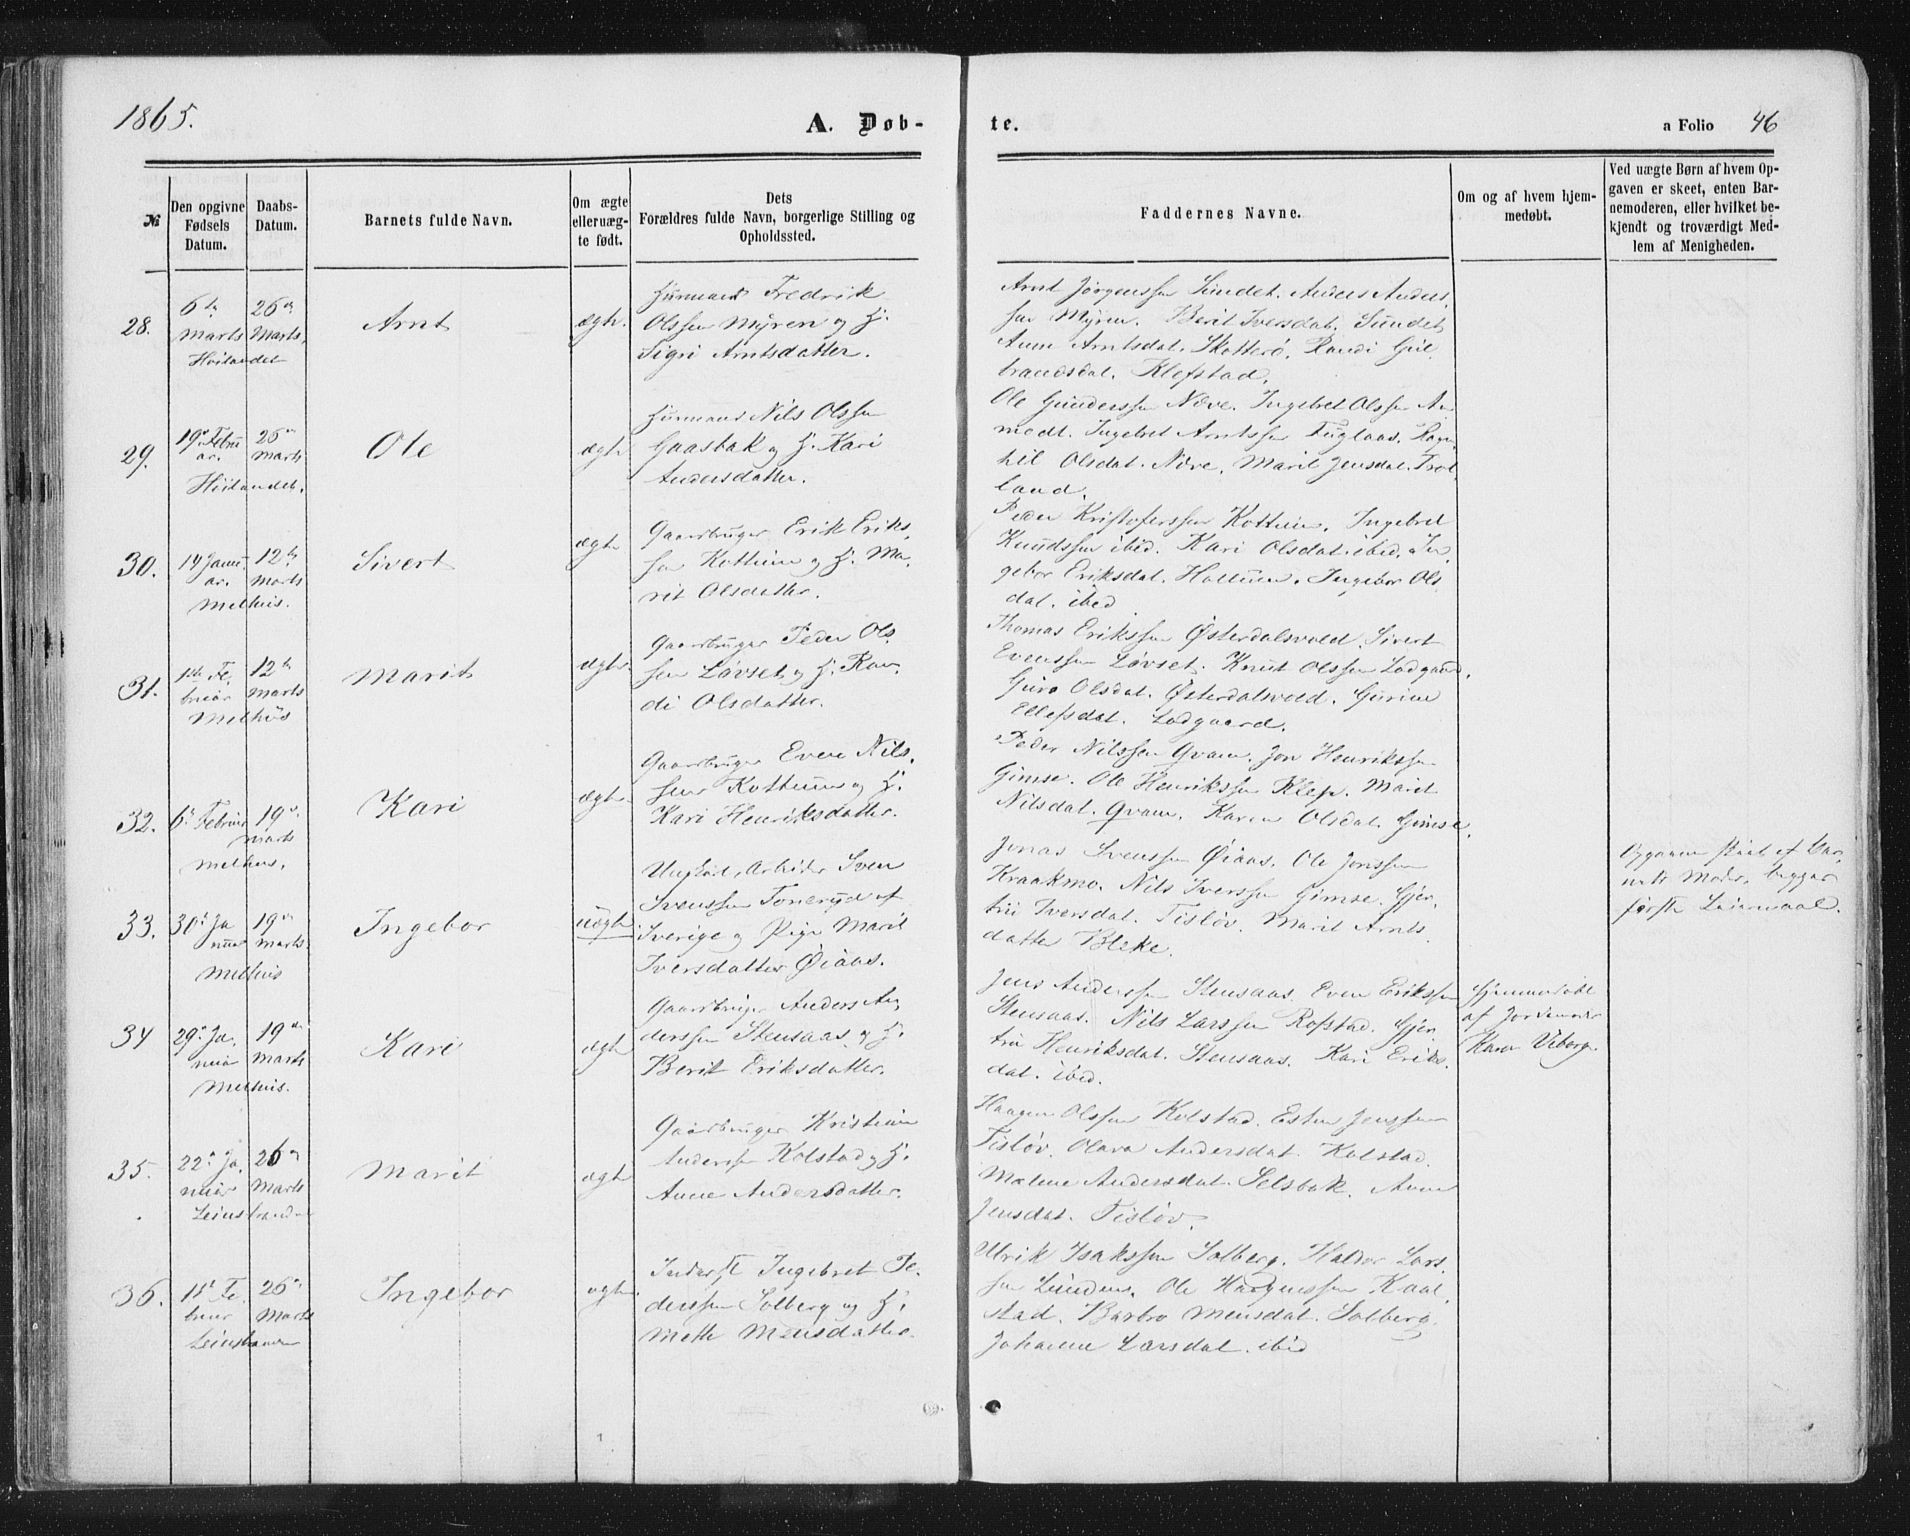 1865.
A. Døb-
te.
a Folio 46
№
Den opgivne Fødsels Datum.
Daabs-Datum.
Barnets fulde Navn.
Om ægte eller uæg-te født.
Dets Forældres fulde Navn, borgerlige Stilling og Opholdssted.
Faddernes Navne.
Om og af hvem hjem-medøbt.
Ved uægte Børn af hvem Op-gaven er skeet, enten Bar-nemoderen, eller hvilket be-kjendt og troværdigt Med-lem af Menigheden.
28.
6te Marts
26de Marts,
Höilandet
Arnt
ægte.
Huusmand Fredrik
Olssen Myren og H.
Sigri Arntsdatter.
Arnt Jörgenssen Sundet. Anders Anders,
sen Myren. Berit Iversdat. Sundet,
Anne Arntsdat. Skotterö. Randi Gul,
brandsdat. Klefstad.
29.
19de Febru
ar.
26de Marts
Höilandet.
Ole
ægte
Huusmand Nils Olssen
Gaasbak og H. Kari
Andersdatter.
Ole Gunderssen Næve. Ingebret Olssen Aa,
modt. Ingebret Arntssen Fuglaas. Ragn
hil Olsdat. Næve. Marit Jensdat. Trot
land.
30.
14 Janu
ar.
12te Marts
Melhuus.
Sivert
ægte
Gaardbruger Erik Eriks,
sen Kottum og H. Ma,
rit Olsdatter.
Peder Kristoferssen Kottum. Ingebret
Knudssen ibid. Kari Olsdat. ibid. In
gebor Eriksdat. Kottum. Ingebor Ols
dat. ibid
31.
1ste Fe,
bruar
12te Marts
Melhuus
Marit
ægte
Gaardbruger Peder Ols,
sen Løvset og H. Ran,
di Olsdatter.
Thomas Erikssen Østerdalsvold. Sivert
Evenssen Løvset. Knut Olssen Ladgaard,
Guro Olsdat. Østerdalsvold. Gurine
Ellefsdat. Ladgaard.
32.
6te Februar
19de Marts
Melhuus,
Kari
ægte
Gaardbruger Even Nils,
sen Kottum og H.
Kari Henriksdatter.
Peder Nilssen Qvam. Jon Henrikssen
Gimse. Ole Henrikssen Klep. Marit
Nilsdat. Qvam. Karen Olsdat. Gimse.
33.
30te Ja
nuar
19de Marts.
Melhuus
Ingebor
uægte
Ungkarl, Arbeider Sven
Svenssen Toneryd af
Sverige og Pige Marit
Iversdatter Øiaas.
Jonas Svenssen Øiaas. Ole Jonssen
Kraakmo. Nils Iverssen Gimse. Gjer,
tru Iversdat. Tisløv. Marit Arnts,
datter Bleke.
Opgaven skeet af Bar,
nets Moder, begges
første Leiermaal.
34
29de Ja,
nuar
19de Marts
Melhuus.
Kari
ægte
Gaardbruger Anders An,
derssen Stensaas og H.
Berit Eriksdatter.
Jens Anderssen Stensaas. Even Erikssen
Stensaas. Nils Larssen Rofstad. Gjer,
tru Henriksdat. Stensaas. Kari Eriks,
dat. ibid.
Hjemmedøbt
af Jordemoder
Karen Viborg.
35.
22de Ja,
nuar
26de Marts
Leinstranden
Marit
ægte
Gaardbruger Kristian
Anderssen Kolstad og H.
Anne Andersdatter.
Haagen Olssen Kolstad. Esten Jenssen
Tisløv. Olava Andersdat. Kolstad.
Malene Andersdat. Selsbak. Anne
Jensdat. Tisløv.
36.
11te Fe,
bruar
26de Marts
Leinstranden
Ingebor
ægte
Inderst Ingebret Pe,
derssen Solberg og H.
Mette Mensdatter.
Ulrik Isakssen Solberg. Haldor Lars,
sen Lunden. Ole Haagenssen Kaal,
stad. Barbro Mensdat. Solberg.
Johanne Larsdat. ibid